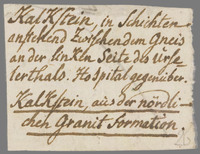 Kalkstein, in Schichten
anstehend Zwischen dem Gneis
an der linken Seite des Urse
lerthals. Hospital gegenüber.
Kalkstein, aus der nördli-
chen Granit Formation